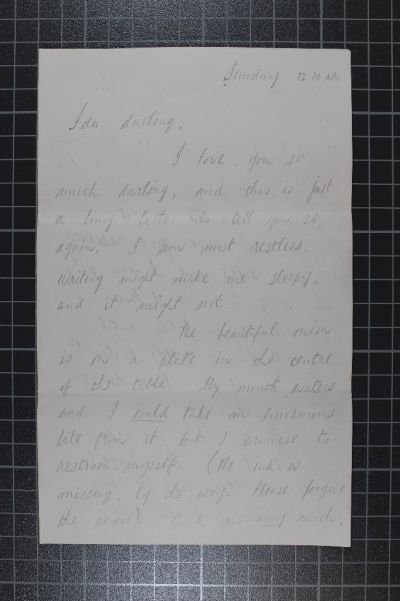 Sunday 12.10 AM
Ida darling,
I love you so
much darling, and this is just
a letter to tell you so,
again. I am most restless.
Writing might make me sleepy,
and it might not.
The beautiful onion
is on a plate in the centre
of the table. My mouth waters
and I could take an enormous
bite from it, but I promise to
restrain myself. (The ink is
missing, by the way. Please forgive
the pencil). very much,